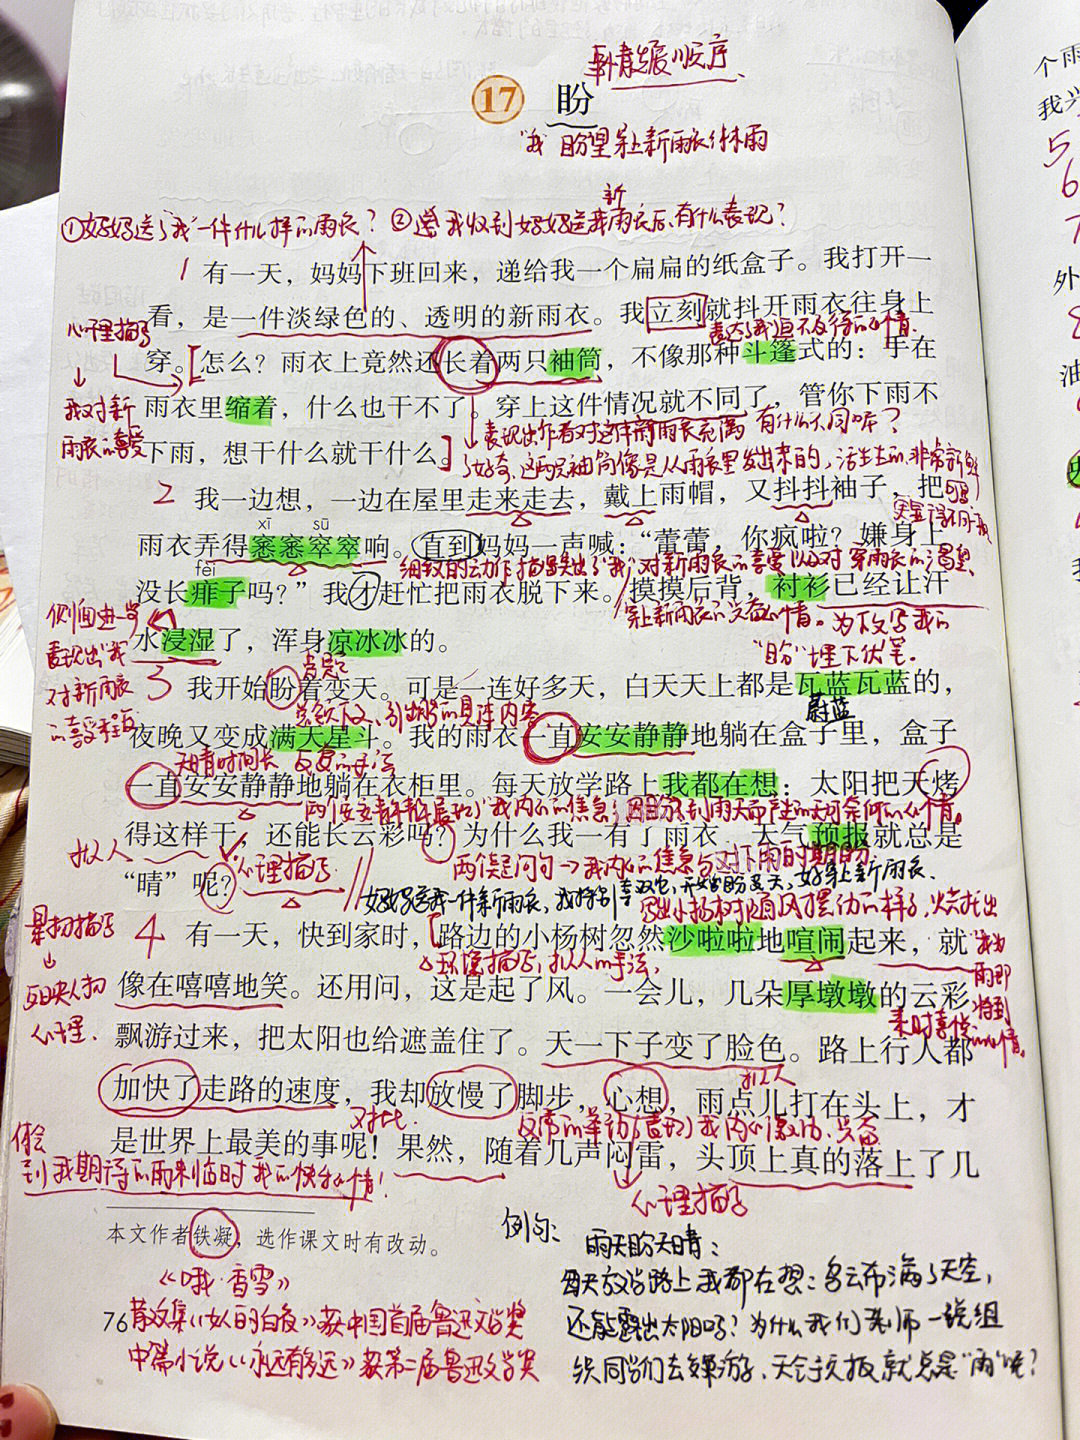 事情发展顺序
17 盼
"我"盼望穿上新雨衣
①妈妈送了"我"一件什么样的雨衣？②当我收到妈妈送我新雨衣后,有什么表现？
1 有一天，妈妈下班回来，递给我一个扁扁的纸盒子。我打开一
看，是一件淡绿色的、透明的新雨衣。我立刻就抖开雨衣往身上
心理描写
表达了我迫不及待的心情.
穿。怎么？雨衣上竟然还长着两只袖筒，不像那种斗篷式的：手在
我对新
雨衣里缩着，什么也干不了。穿上这件情况就不同了，管你下雨不
雨衣的喜爱
表现出作者对这件新雨衣充满 有什么不同呢？
下雨，想干什么就干什么。
了好奇、这两只袖筒像是从雨衣里发出来的，活生生的、非常新鲜
2 我一边想，一边在屋里走来走去，戴上雨帽，又抖抖袖子，把
xī sū
雨衣弄得窸窸窣窣响。直到妈妈一声喊："蕾蕾，你疯啦？嫌身上
细致的动作描写突出了"我"对新雨衣的喜爱以及对穿雨衣的渴望
fèi
没长痱子吗？"我才赶忙把雨衣脱下来。摸摸后背，衬衫已经让汗
穿上新雨衣的兴奋心情。为下文写我的
侧面进一步
水浸湿了，浑身凉冰冰的。
表现出"我"
"盼"埋下伏笔.
对新雨衣
的喜爱程度
点题
3 我开始盼着变天。可是一连好多天，白天天上都是瓦蓝瓦蓝的，
总领下文、引出盼的具体内容
蔚蓝
夜晚又变成满天星斗。我的雨衣一直安安静静地躺在盒子里，盒子
天晴时间长 反复的手法
一直安安静静地躺在衣柜里。每天放学路上我都在想：太阳把天烤
得这样干，还能长云彩吗？为什么我一有了雨衣，天气预报就总是
拟人
两个疑问句→我内心的焦急与对下雨的期盼
"晴"呢？
心理描写.
妈妈送我一件新雨衣，我特别喜欢它，开始盼变天，好穿上新雨衣.
写出小杨树随风摆动的样子，烘托出
景物描写
4 有一天，快到家时，路边的小杨树忽然沙啦啦地喧闹起来，就
环境描写，拟人的手法，
反映人物
心理.
像在嘻嘻地笑。还用问，这是起了风。一会儿，几朵厚墩墩的云彩
来时喜悦的心情.
飘游过来，把太阳也给遮盖住了。天一下子变了脸色。路上行人都
拟人
加快了走路的速度，我却放慢了脚步，心想，雨点儿打在头上，才
对比.
反常的举动表现了我内心激动、兴奋
是世界上最美的事呢！果然，随着几声闷雷，头顶上真的落上了几
体会
到我期待的雨来临时我的快乐心情！
心理描写
本文作者铁凝，选作课文时有改动。
《哦·香雪》
76
散文集《女人的白夜》获中国首届鲁迅文学奖
中篇小说《永远有多远》获第二届鲁迅文学奖
例句：
雨天盼天晴：
每天放学路上我都在想：乌云布满了天空，
还能露出太阳吗？为什么我们老师一说组
织同学们去春游、天气预报就总是"雨"呢？
个雨
我兴
5
6
7
外
8
油